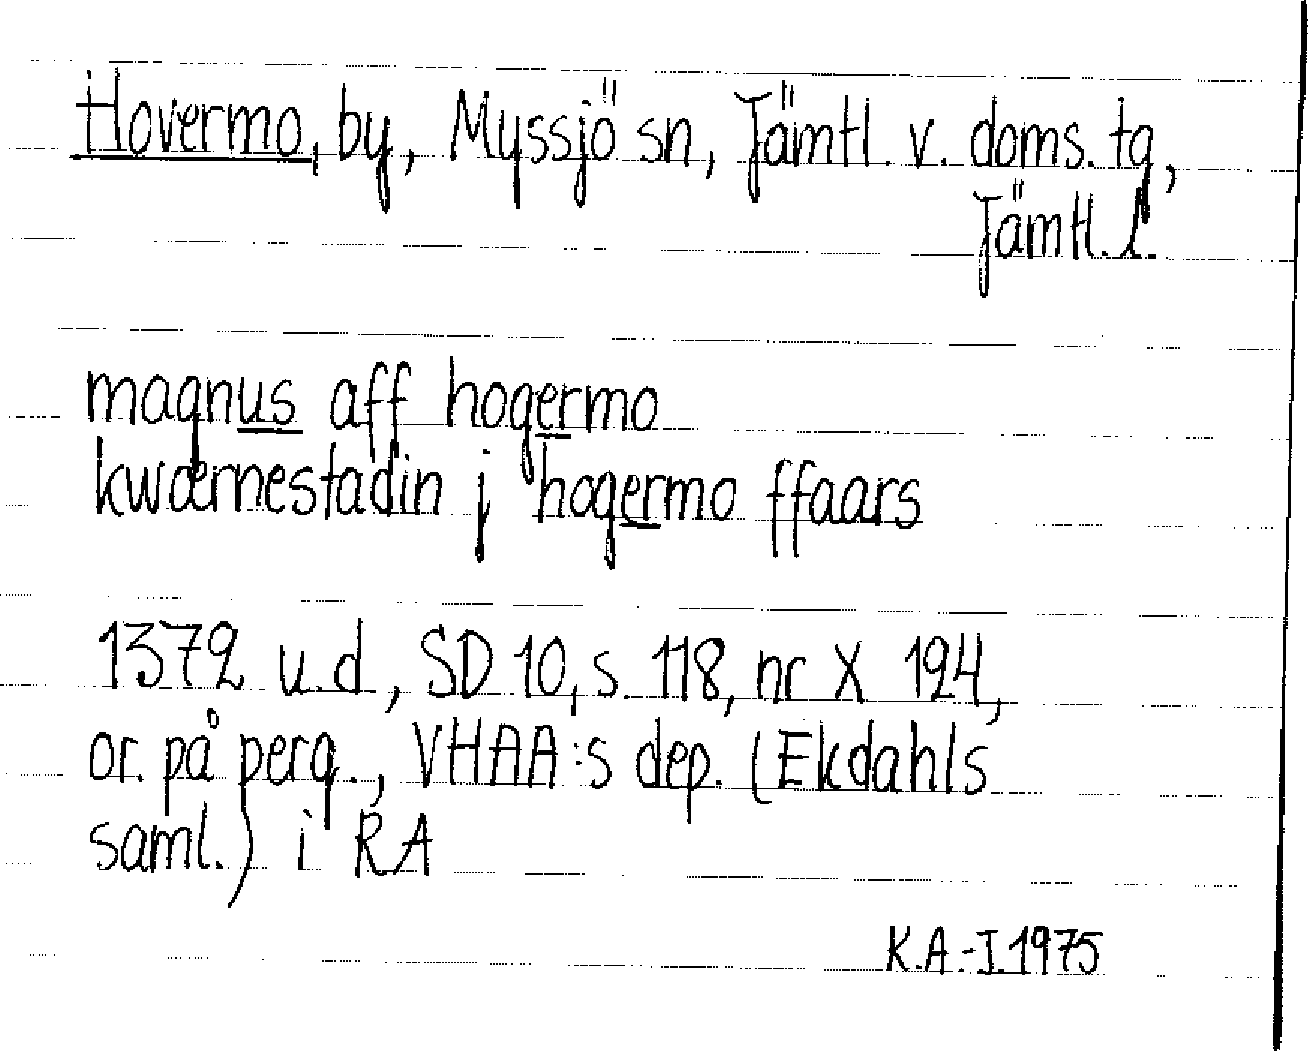 Hovermo, by, Myssjö sn, Jämtl. v. doms. tg,
Jämtl. l.
magnus aff hogermo
kwærnestadin j hogermo ffaars
1372 u.d., SD 10, s. 118, nr X 194,
or. på perg., VHAA:s dep. (Ekdahls
saml.) i RA
K.A.-I. 1975